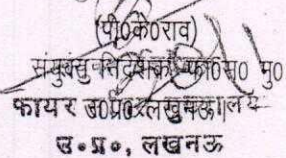 (पी0के0राव)
संयुक्त निदेशक फा0स0 मु0
फायर उ0प्र0 लखनऊ
उ०प्र०, लखनऊ